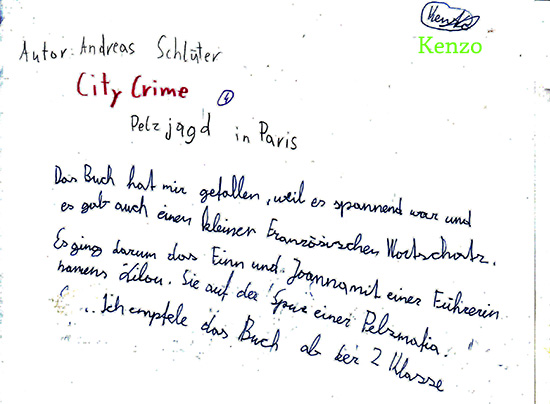 Kenzo
Kenzo
Autor: Andreas Schlüter
City Crime 4
Pelzjagd in Paris
Das Buch hat mir gefallen, weil es spannend war und
es gab auch einen kleiner Französischen Wortschatz.
Es ging darum das Finn und Joanna mit einer Führerin
namens Lilou. Sie auf der Spur einer Pelzmafia.
... Ich empfele das Buch ab ker 2 Klasse